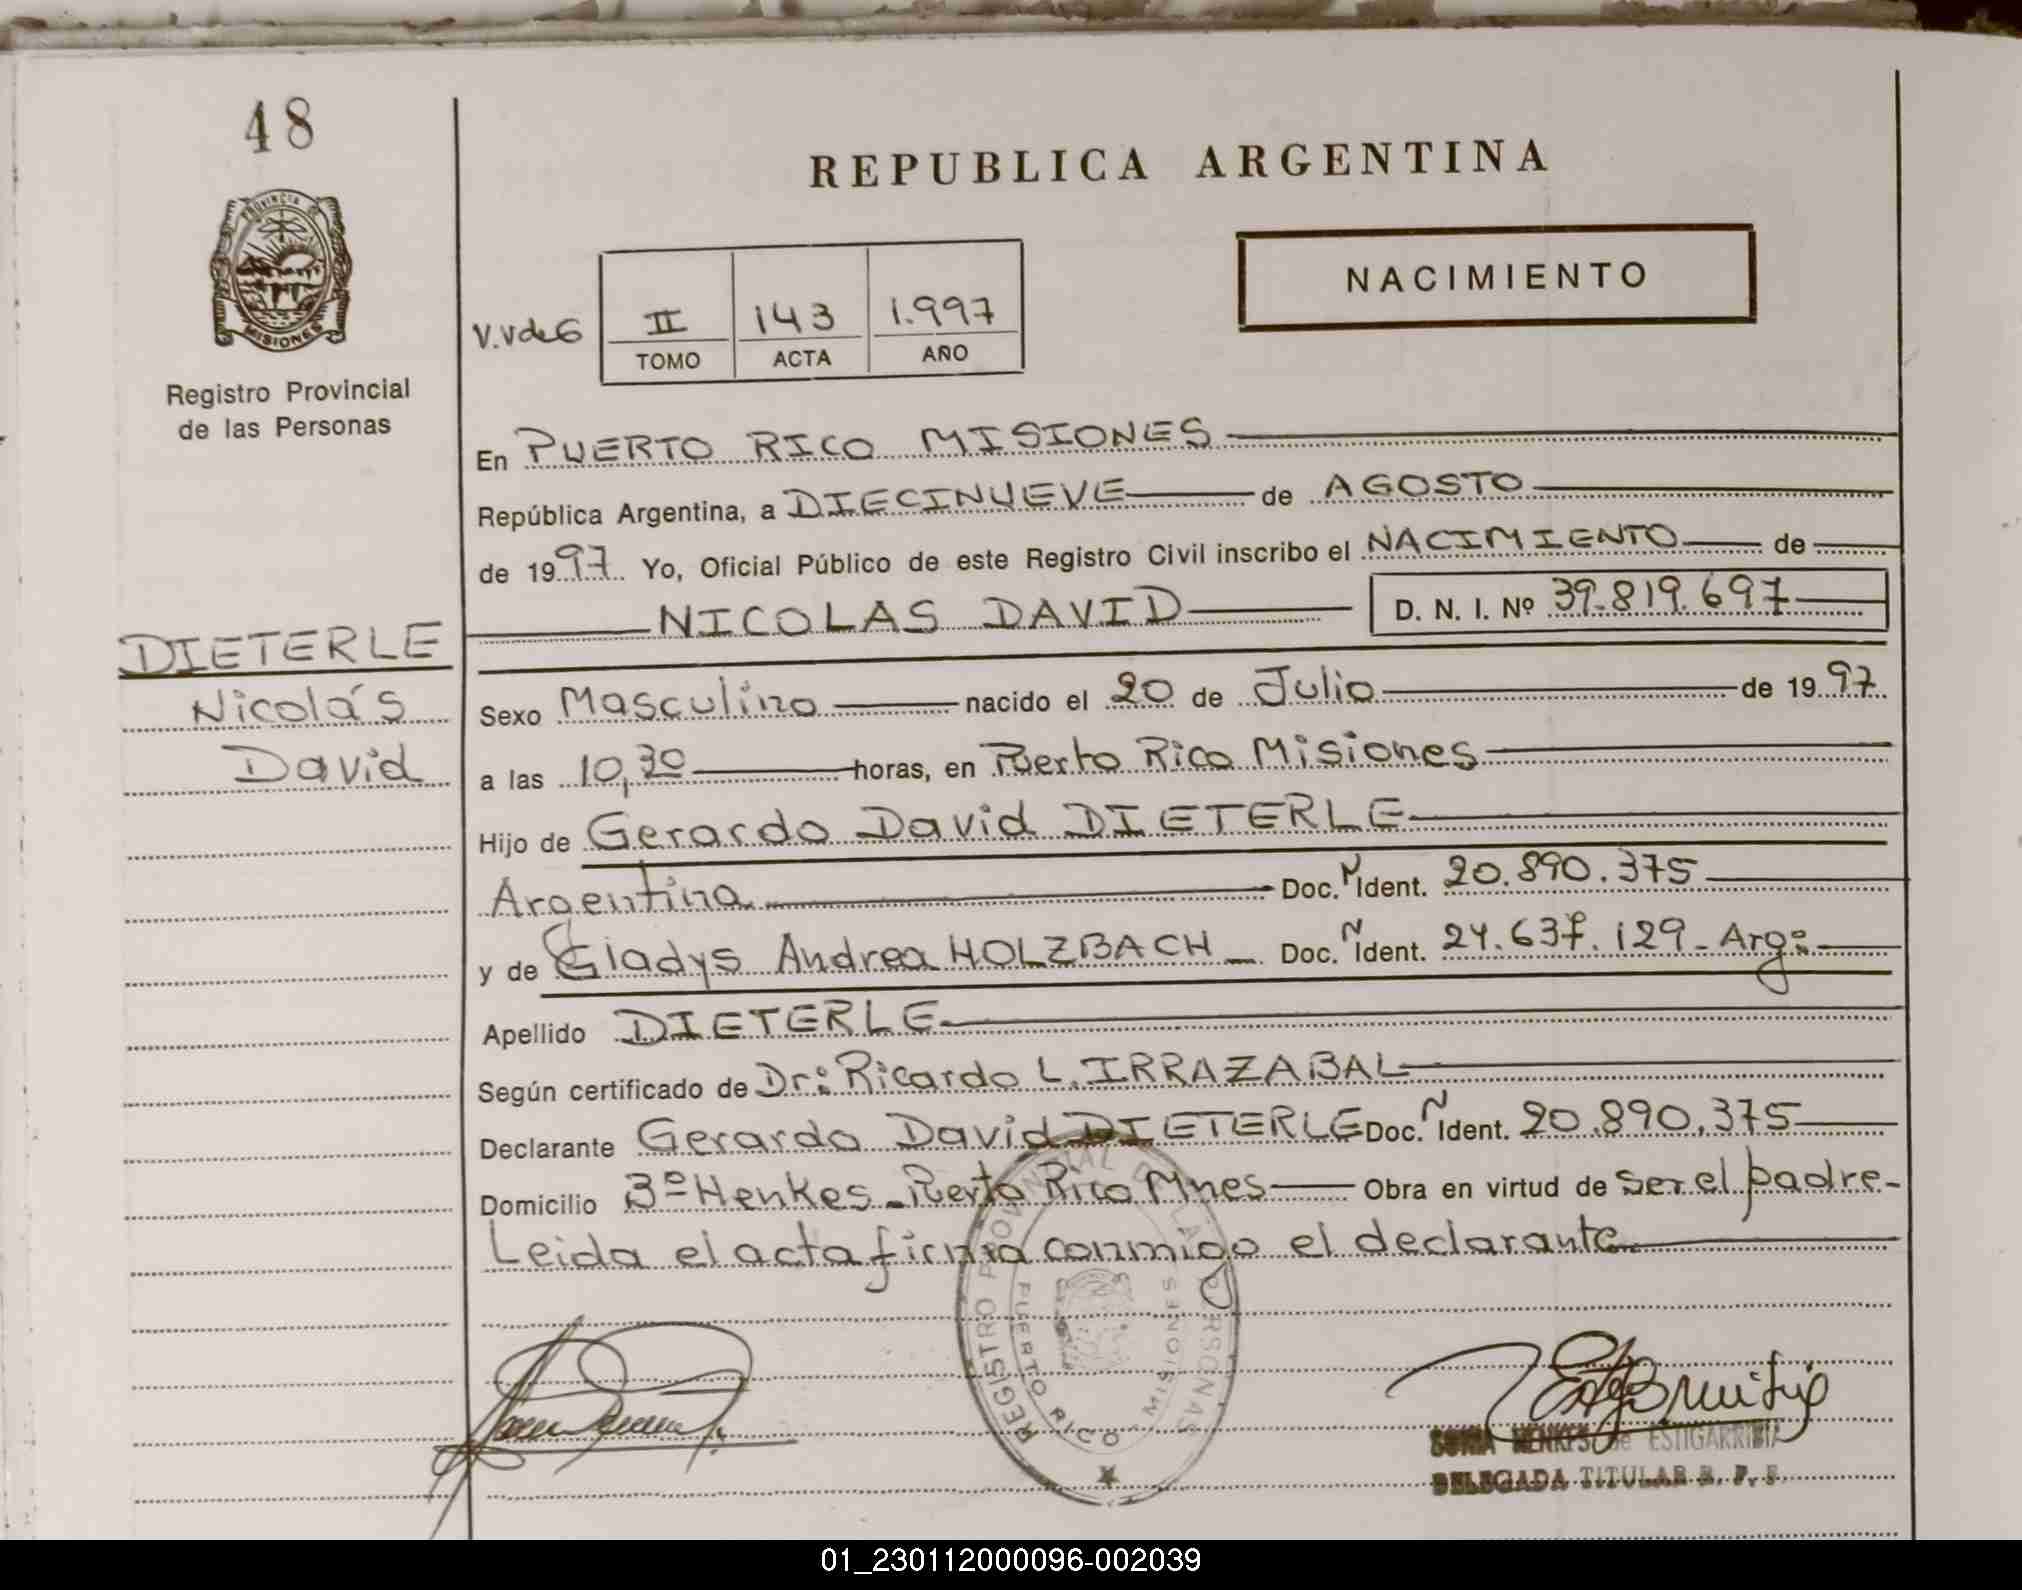 48
PROVINCIA DE
MISIONES
Registro Provincial
de las Personas
REPUBLICA ARGENTINA
NACIMIENTO
V.V de G
II 143 1.997
TOMO ACTA AÑO
En PUERTO RICO MISIONES
República Argentina, a DIECINUEVE de AGOSTO
de 1997 Yo, Oficial Público de este Registro Civil inscribo el NACIMIENTO de
NICOLAS DAVID D. N. I. Nº 39.819.697
DIETERLE
Nicolás
David
Sexo Masculino nacido el 20 de Julio de 1997
a las 10,30 horas, en Puerto Rico Misiones
Hijo de Gerardo David DIETERLE
Argentina Doc. N Ident. 20.890.375
y de Gladys Andrea HOLZBACH Doc. N Ident. 24.637.129 - Arg:
Apellido DIETERLE
Según certificado de Dr: Ricardo L. IRRAZABAL
Declarante Gerardo David DIETERLE Doc. N Ident. 20.890.375
Domicilio Bº Henkes - Puerto Rico Mnes Obra en virtud de ser el padre -
Leida el acta firma conmigo el declarante
REGISTRO PROVINCIAL DE LAS PERSONAS
PUERTO RICO MISIONES
SONIA HENKES de ESTIGARRIBIA
DELEGADA TITULAR R. P. P.
01_230112000096-002039